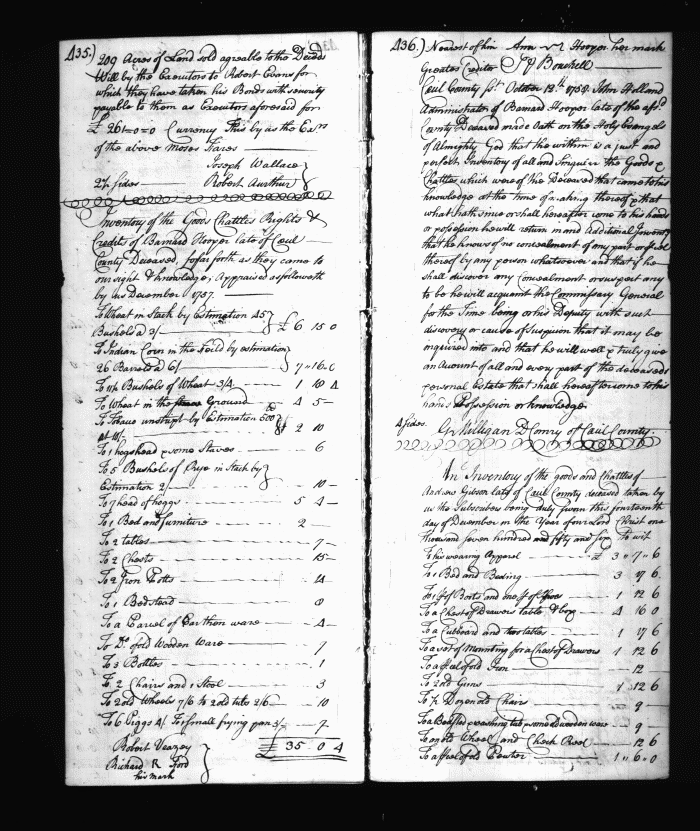 435.)
200 Acres of Land sold agreable to the Deceds
Will by the Executors to Robert Evans for
which they have taken his Bonds with security
payable to them as Executors aforesaid for
£ 261=0=0 Currency This by as the Exrs
of the above Moses
Joseph Wallace
2½ sides Robert Aurthur
Inventory of the Goods Chattles Rights &
Credits of Barnard Hooper late of Cecil
County Deceased, so far forth as they came to
our sight & knowledge, Appraised as followeth
by us December 1757.
To Wheat in Stack by Estimation 45
Bushels a 3/ £ 6 15 0
To Indian Corn in the feild by estimation
26 Barrels a 6/ 7 " 16 = 0
To 11½ Bushels of Wheat 3/4 1 10 4
To Wheat in the Ground 4 5
To Tobaco unstript by Estimation 500
at 10/ 2 10
To 1 hogshead & some Staves 6
To 5 Bushels of Rye in Stack by
Estimation 2/ 10
To 7 head of hoggs 5 4
To 1 Bed and furniture 2
To 2 tables 7
To 2 Chests 15
To 2 Iron Potts 14
To 1 Bedstead 8
To a Parcel of Earthen ware 4
To Do. of old Wooden Ware 7
To 3 Bottles 1
To 2 Chairs and 1 Stool 3
To 2 old Wheels 7/6 to 2 old 2/6 10
To 6 Piggs 4/ To 1 small frying pan 3/ 7
Robert Veazey £ 35 0 4
Richard R Ford
his mark
436.) Nearest of kin Ann Hooper her mark
Greatest Creditor
Cecil County Sct. October 12th. 1758. John Holland
Administrator of Barnard Hooper late of the afsd.
County Deceased made Oath on the Holy Evangels
of Almighty God that the within is a just and
perfect Inventory of all and Singular the Goods &
Chattles which were of the Deceased that came to his
knowledge at the time of making thereof & that
what hath since or shall hereafter come to his hands
or possession he will return in and Additional Inventy
that he knows of no concealment of any part
thereof by any person whatsoever and that if he
shall discover any Concealment or suspect any
to be he will acquaint the Commissary General
for the Time being or his Deputy with such
discovery or cause of Suspicion that it may be
inquired into and that he will well & truly give
an Amount of all and every part of the deceaseds
personal Estate that shall hereafter come to his
hands Possession or knowledge.
4 sides. Milligan D Comry of Cecil County.
An Inventory of the goods and Chattles of
Andrew Gibson late of Cecil County deceased taken by
us the Subscribers being duly sworn this fourteenth
day of December in the Year of our Lord Christ one
thousand seven hundred and fifty and six To wit
To his wearing Apparel £ 3 " 7 " 6
To 1 Bed and Beding 3 17 6
To 1 pr of Boots and one pr of Shoes 1 12 6
To a Chest of Drawers table & box 4 16 0
To a Cubboard and two tables 1 17 6
To a set of Mounting for a Chest of Drawers 1 12 6
To a pcel of old Iron 12
To 2 old Guns 1 12 6
To ½ Dozen old Chairs 9
To a washing tub some old wooden ware 9
To an old Wheel and Check Reel 12 6
To a pcel of old Pewter 1 " 6 " 0